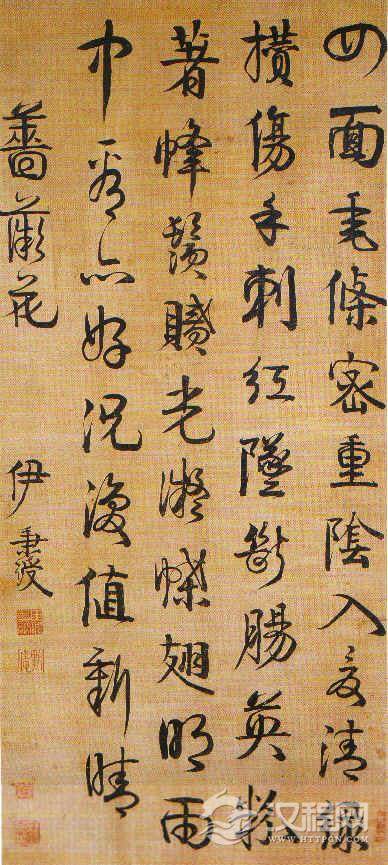 四面垂條密重陰入夏清綠
攢傷手刺紅墜斷腸英粉
著蜂鬚膩光凝蝶翅明雨
中看亦好況復值新晴
薔薇花
伊秉綬
汉程网
HTTPCN.COM